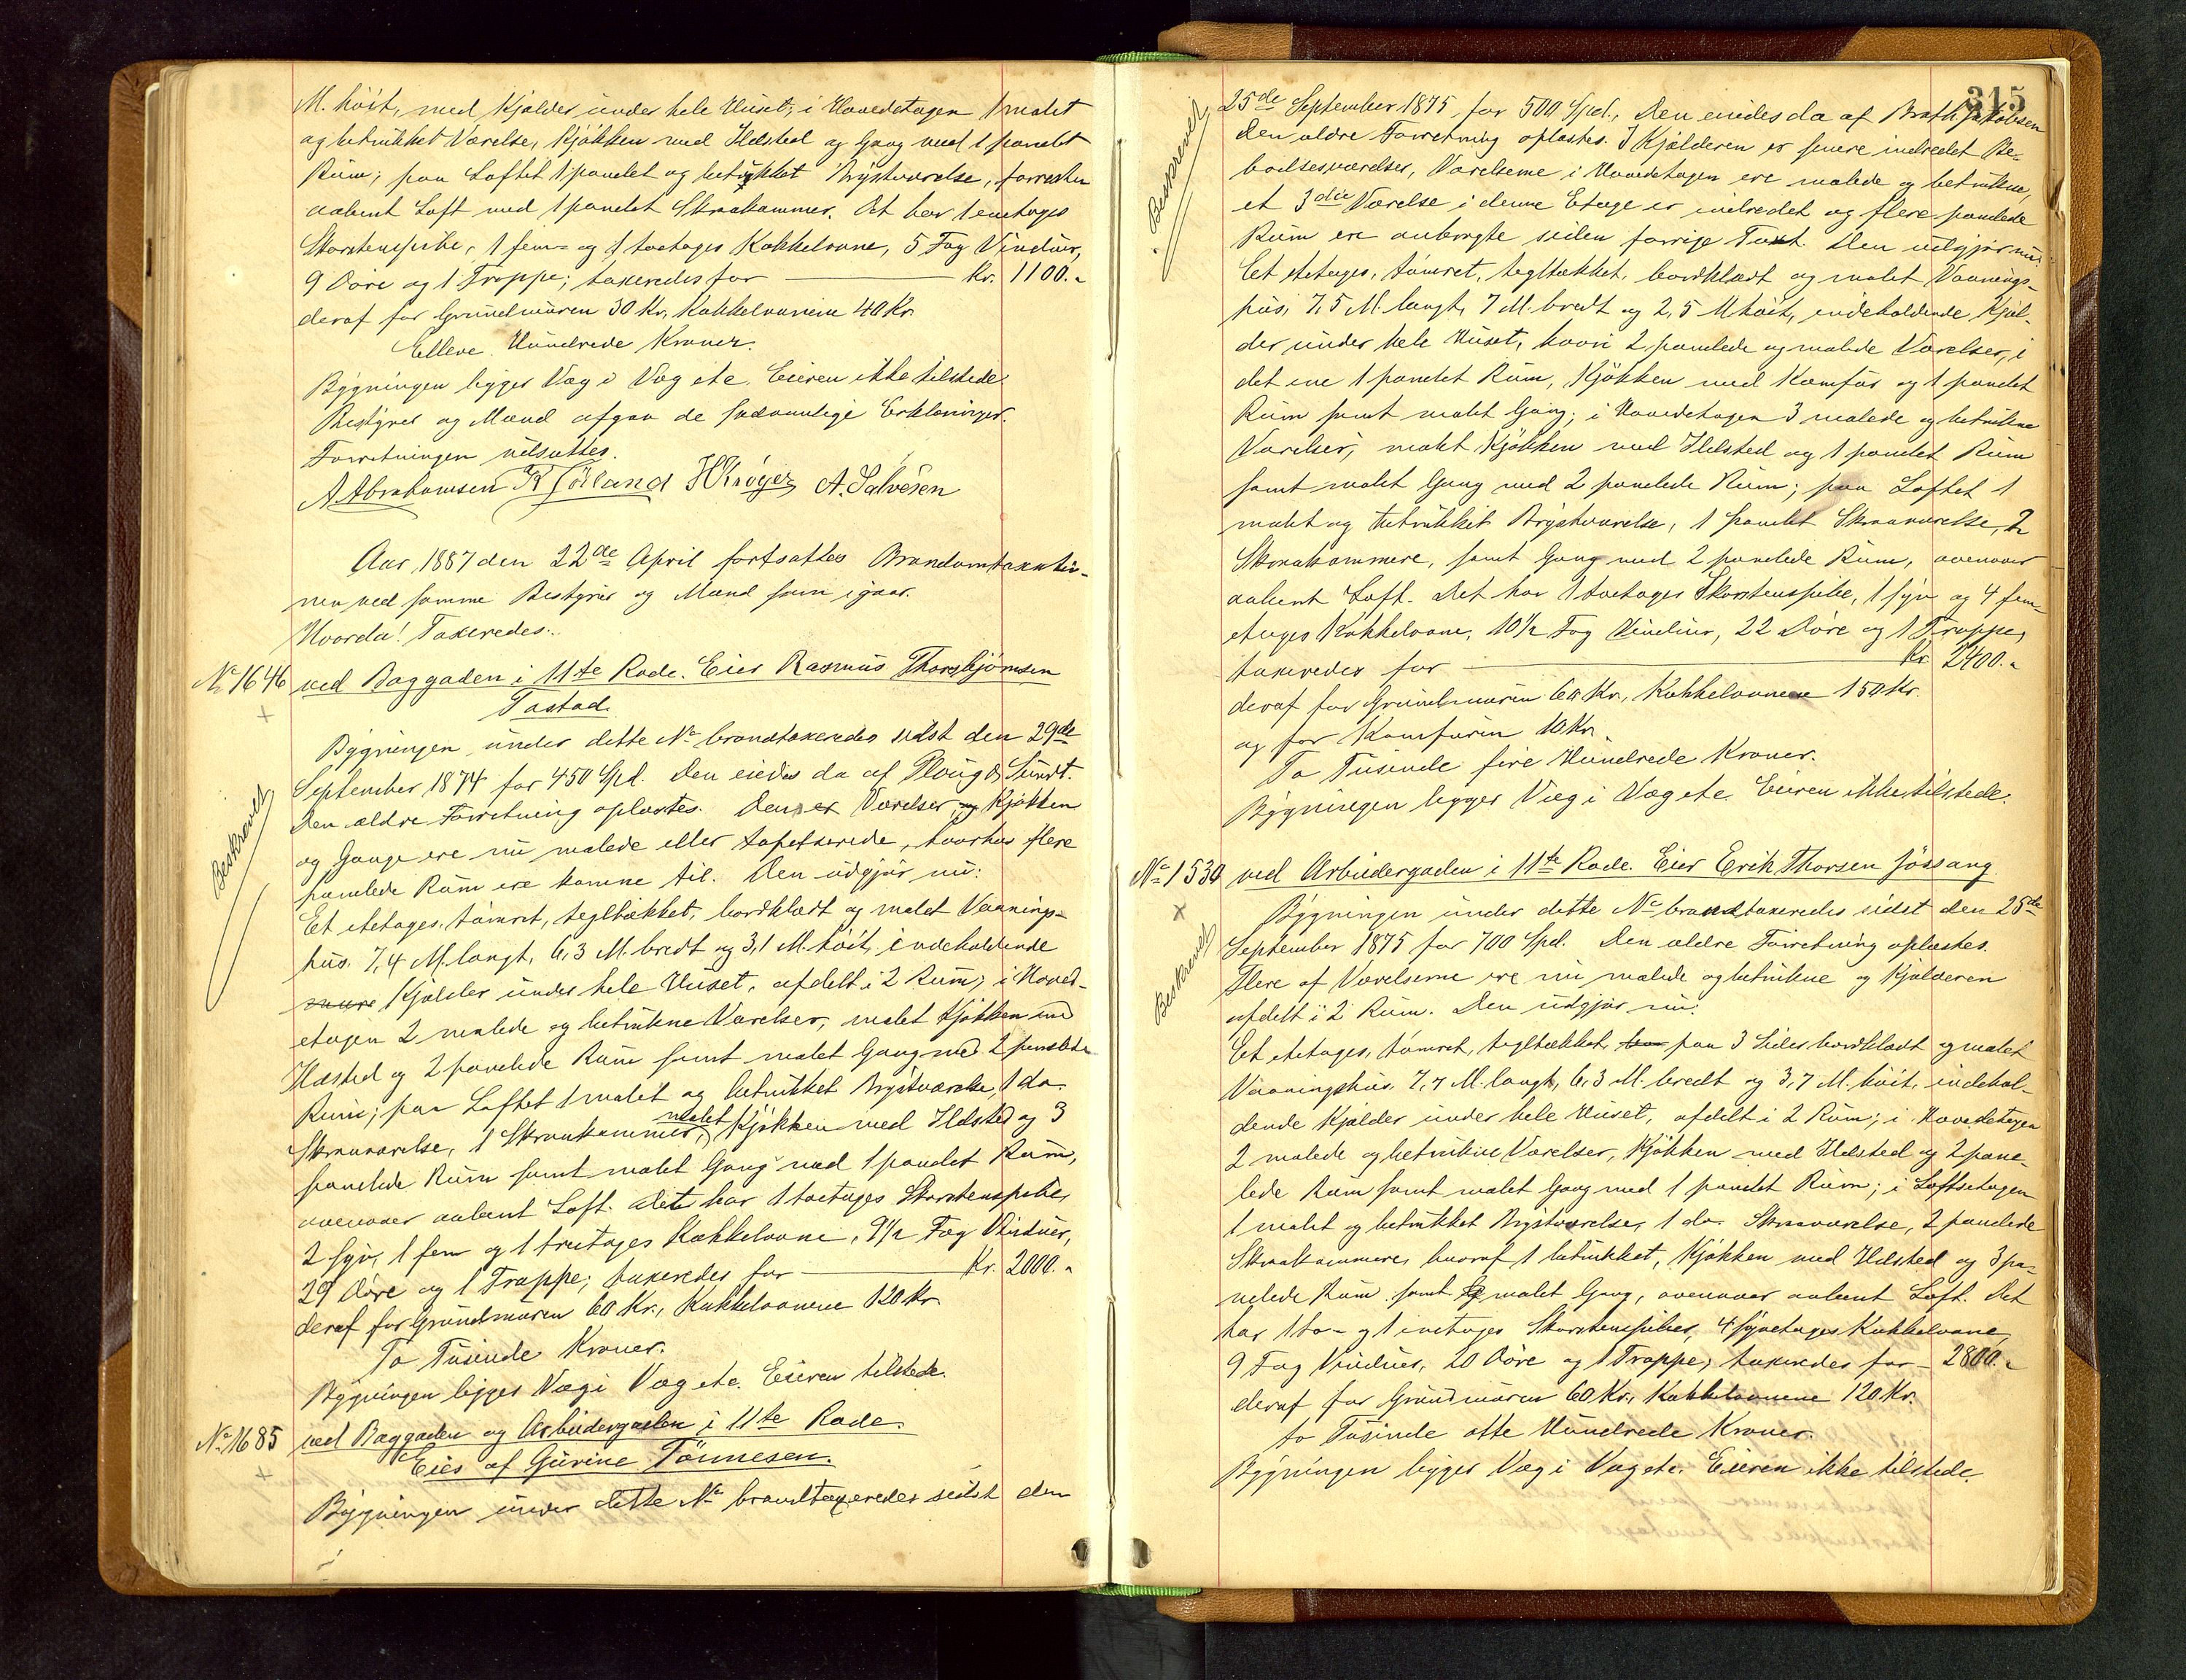 M. höit, med Kjælder under hele Huset; i Hovedetagen 1 malet
og betrukket Værelse, Kjøkken med Ildsted og Gang med 1 panelet
Rum; paa Loftet 1 panelet og betrukket Brystværelse, forresten
aabent Loft med 1 panelet Skraakammer. Det har 1 enetages
Skorstenspibe, 1 fem- og 1 toetages Kakkelovne, 5 Fag Vinduer,
9 Döre og 1 Trappe; taxeredes for — kr. 1100.-
deraf for Grundmuren 30 Kr, Kakkelovnene 40 Kr.
Elleve Hundrede Kroner.
Bygningen ligger Væg i Væg etc. Eieren ikke tilstede.
Bestyrer og Mænd afgav de sædvanlige Erklæringer.
Forretningen udsattes.
A Abrahamsen H Kröyer A. Salvesen
Aar 1887 den 22de April fortsattes Brandomtaxatio-
nen ved samme Bestyrer og Mænd som igaar.
Hvorda! Taxeredes:
No 1646 ved Baggaden i 11te Rode. Eier Rasmus Thorbjörnsen
Tastad.
Bygningen under dette No brandtaxeredes sidst den 29de
September 1874 for 450 Spd. Den eiedes da af Ploug & Sundt.
Den ældre Forretning oplæstes. Værelser og Kjøkken
og Gange ere nu malede eller tapetserede, hvorhos flere
panelede Rum ere komne til. Den udgjør nu:
Beskrevet
Et etetages, tömret, teglt��kket, bordklædt og malet Vaanings-
hus. 7,4 M. langt, 6,3 M. bredt og 3,1 M. höit, indeholdende
Kjælder under hele Huset, afdelt i 2 Rum; i Hoved-
etagen 2 malede og betrukne Værelser, malet Kjøkken med
Ildsted og 2 panelede Rum samt malet Gang med 2 panelede
Rum; paa Loftet 1 malet og betrukket Brystværelse, 1 do.
Skraaværelse, 1 Skraakammer, malet Kjøkken med Ildsted og 3
panelede Rum samt malet Gang med 1 panelet Rum,
ovenover aabent Loft. Det har 1 toetages Skorstenspibe,
2 syv, 1 fem og 1 treetages Kakkelovne, 9 1/2 Fag Vinduer,
29 Döre og 1 Trappe; taxeredes for — Kr. 2000.-
deraf for Grundmuren 60 Kr., Kakkelovnene 120 Kr
To Tusinde Kroner.
Bygningen ligger Væg i Væg etc. Eieren tilstede.
No 1685 ved Baggaden og Arbeidergaden i 11te Rode.
Eies af Gurine Tönnesen.
Bygningen under dette No brandtaxeredes sidst den
315
25de September 1875 for 500 Spd., Den eiedes da af Jakobsen
Den ældre Forretning oplæstes. I Kjælderen er senere indredet Be-
boelsesværelser, Værelserne i Hovedetagen ere malede og betrukne,
et 3die Værelse i denne Etage er indredet og flere panelede
Rum ere anbragte siden forrige Taxt. Den udgjør nu:
Beskrevet
Et etetages, tömret, tegltækket, bordklædt og malet Vaanings-
hus, 7,5 M. langt, 7 M. bredt og 2,5 M höit, indeholdende Kjæl-
der under hele Huset, hvori 2 panelede og malede Værelser, i
det ene 1 panelet Rum, Kjøkken med Komfur og 1 panelet
Rum samt malet Gang; i Hovedetagen 3 malede og betrukne
Værelser, malet Kjøkken med Ildsted og 1 panelet Rum
samt malet Gang med 2 panelede Rum; paa Loftet 1
malet og betrukket Brystværelse, 1 panelet Skraaværelse, 2
Skraakammere, samt Gang med 2 panelede Rum, ovenover
aabent Loft. Det har 1 toetages Skorstenspibe, 1 syv og 4 fem-
etages Kakkelovne, 10 1/2 Fag Vinduer, 22 Döre og 1 Trappe,
taxeredes for — kr 2400.-
deraf for Grundmuren 60 Kr., Kakkelovnene 150 Kr.
og for Komfuren 10 Kr.
To Tusinde fire Hundrede Kroner.
Bygningen ligger Væg i Væg etc. Eieren ikke tilstede.
No 1530 ved Arbeidergaden i 11te Rode. Eier Erik Thorsen Jössang.
Bygningen under dette No brandtaxeredes sidst den 25de
September 1875 for 700 Spd. Den ældre Forretning oplæstes.
Flere af Værelserne ere nu malede og betrukne og Kjælderen
afdelt i 2 Rum. Den udgjør nu:
Beskrevet
Et etetages, tömret, tegltækket, paa 3 Sider bordklædt og malet
Vaaningshus, 7,7 M. langt, 6,3 M. bredt og 3,7 M. höit, indehol-
dende Kjælder under hele Huset, afdelt i 2 Rum; i Hovedetagen
2 malede og betrukne Værelser, Kjøkken med Ildsted og 2 pane-
lede Rum samt malet Gang med 1 panelet Rum; i Loftsetagen
1 malet og betrukket Brystværelse, 1 do. Skraaværelse, 2 panelede
Skraakammere, hvoraf 1 betrukket, Kjøkken med Ildsted og 3 pa-
nelede Rum samt malet Gang, ovenover aabent Loft. Det
har 1 to- og 1 enetages Skorstenspiber, 4 syvetages Kakkelovne,
9 Fag Vinduer, 20 Döre og 1 Trappe; taxeredes for - 2800.-
deraf for Grundmuren 60 Kr., Kakkelovnene 120 Kr.
to Tusinde otte Hundrede Kroner.
Bygningen ligger Væg i Væg etc. Eieren ikke tilstede.